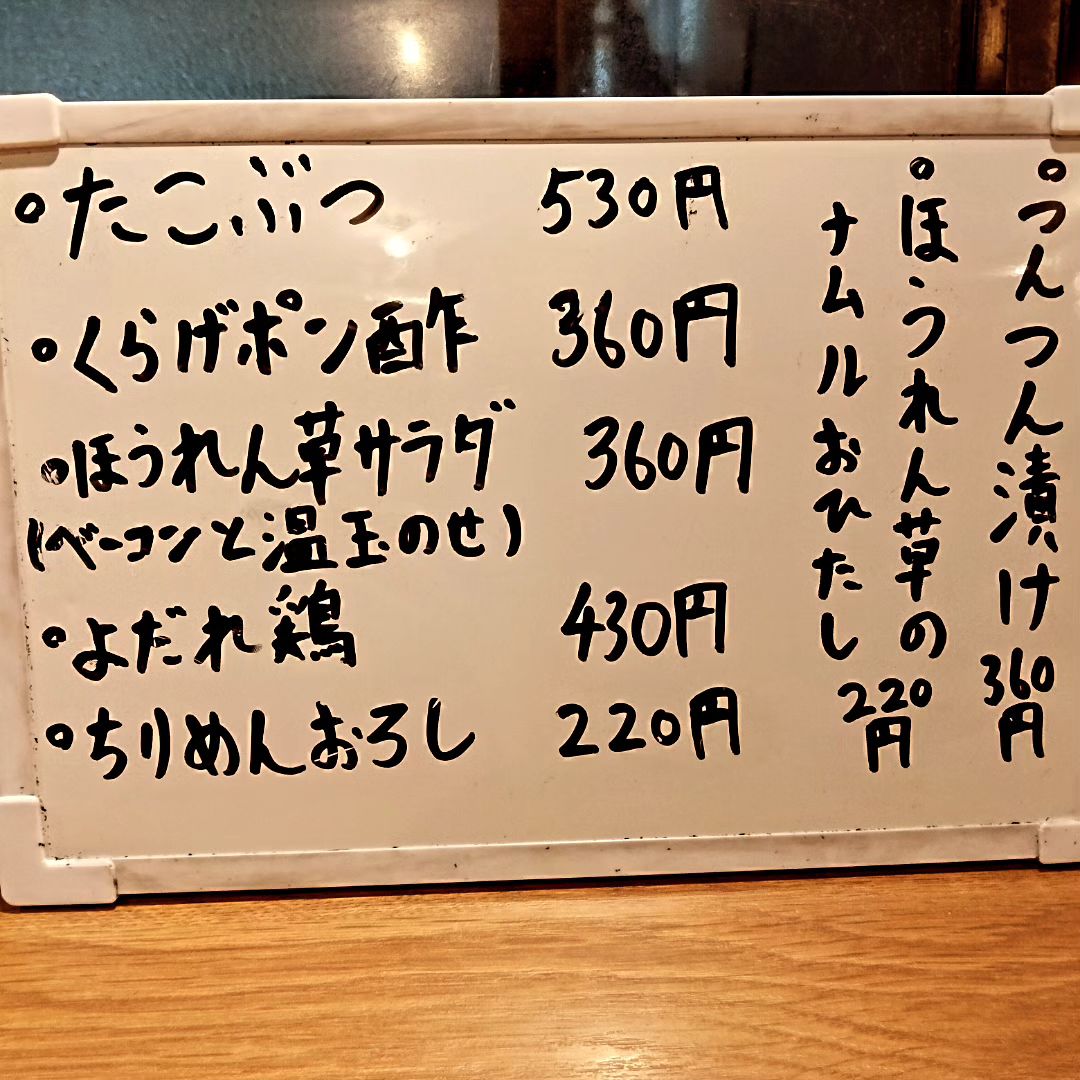 たこぶつ 530円
くらげポン酢 360円
ほうれん草サラダ 360円
(ベーコンと温玉のせ)
よだれ鶏 430円
ちりめんおろし 220円
つんつん漬け 360円
ほうれん草の
ナムルおひたし 220円